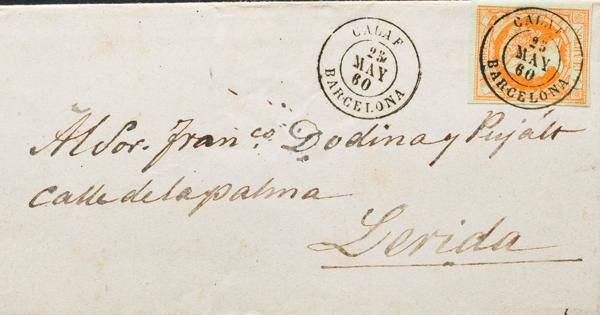 CALAF
25
MAY
60
BARCELONA
CALAF
25
MAY
60
BARCELONA
Al Sor. Franco. Dodina y Pujált
calle de la palma
Lerida